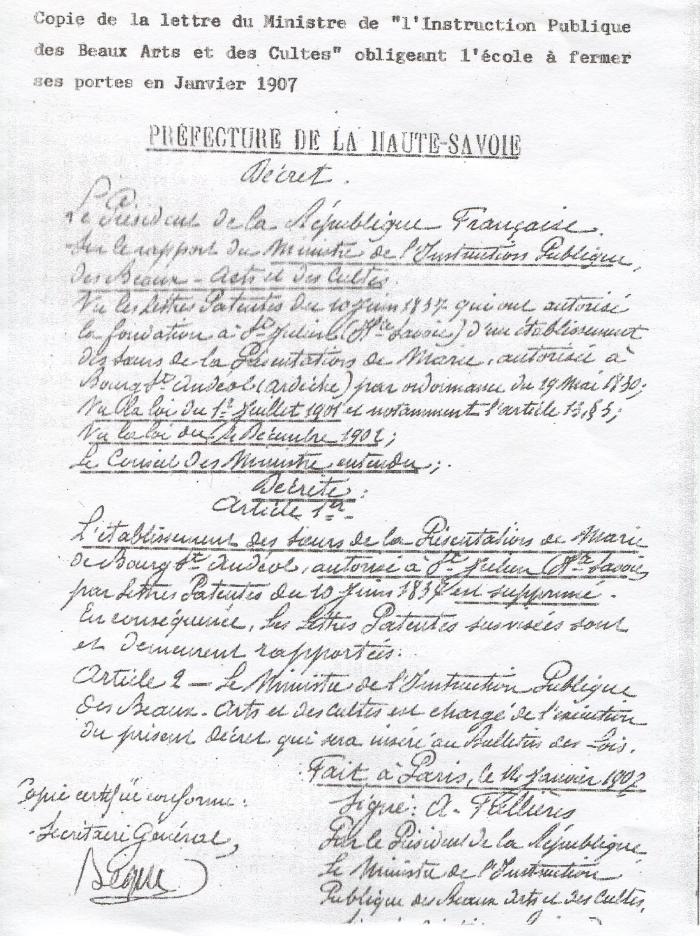 Copie de la lettre du Ministre de "l'Instruction Publique
des Beaux Arts et des Cultes" obligeant l'école à fermer
ses portes en Janvier 1907
PRÉFECTURE DE LA HAUTE-SAVOIE
Décret.
Le Président de la République Française.
Sur le rapport du Ministre de l'Instruction Publique,
des Beaux-Arts et des Cultes.
Vu les Lettres Patentes du 10 Juin 1837 qui ont autorisé
la fondation à St Julien (Hte Savoie) d'un établissement
des sœurs de la Présentation de Marie, autorisé à
Bourg St Andéol (Ardèche) par ordonnance du 29 Mai 1830;
Vu la loi du 1er Juillet 1901 et notamment l'article 13, § 3;
Vu la loi du 4 Décembre 1902;
Le Conseil des Ministre entendu;
Décrète:
Article 1er
L'établissement des sœurs de la Présentation de Marie
de Bourg St Andéol, autorisé à St Julien (Hte Savoie)
par Lettres Patentes du 10 Juin 1837 est supprimé.
En conséquence, les Lettres Patentes susvisées sont
et demeurent rapportées.
Article 2 — Le Ministre de l'Instruction Publique
des Beaux-Arts et des Cultes est chargé de l'exécution
du présent décret qui sera inséré au Bulletin des Lois.
Fait à Paris, le 14 Janvier 1907
Signé: A. Fallières
Par le Président de la République
Le Ministre de l'Instruction
Publique des Beaux Arts et des Cultes,
Copie certifiée conforme:
Secrétaire Général,